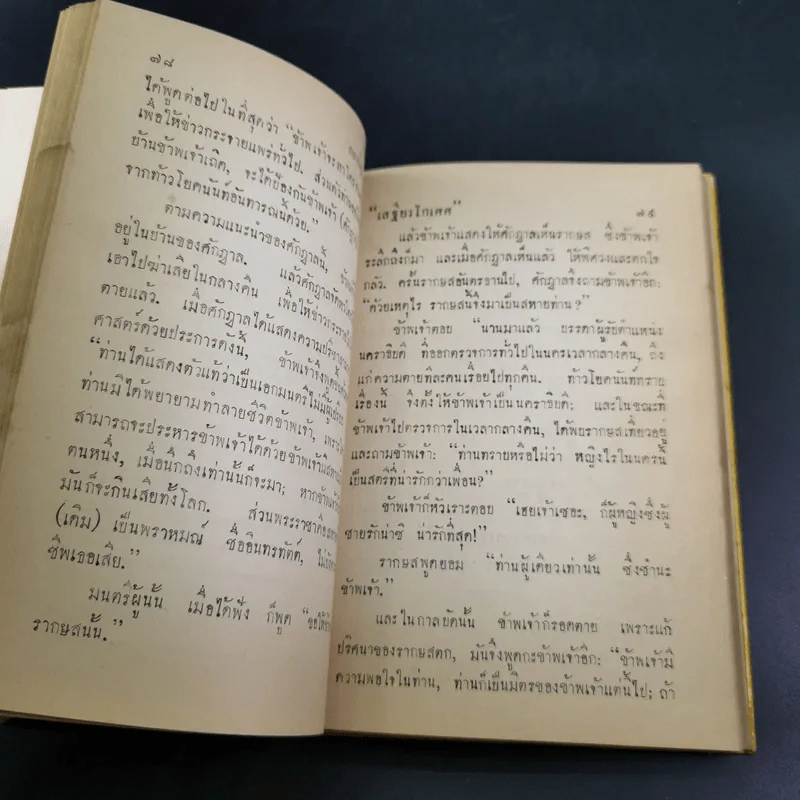 ๗๘
ได้พูดต่อไปในที่สุดว่า “ข้าพเจ้าจะหา
เพื่อให้ข่าวกระจายแพร่ทั่วไป. ส่วนตัวท่าน
บ้านข้าพเจ้าเถิด, จะได้ป้องกันข้าพเจ้า
จากท้าวโยคนันท์อันทารณนี้ด้วย.”
ตามความแนะนำของศักฎาลนี้,
อยู่ในบ้านของศักฎาล. แล้วศักฎาล
เอาไปฆ่าเสียในกลางคืน เพื่อให้ข่าว
ตายแล้ว. เมื่อศักฎาลได้แสดงความ
ศาสตร์ด้วยประการดังนี้, ข้าพเจ้าจึงพูด
“ท่านได้แสดงตัวแท้ว่าเป็นเอกมนตรีไม่มี
ท่านมิได้พยายามทำลายชีวิตข้าพเจ้า,
สามารถจะประหารข้าพเจ้าได้ด้วยข้าพเจ้ามี
ตนหนึ่ง, เมื่อนึกถึงเท่านั้นก็จะมา; หาก
มันก็จะกินเสียทั้งโลก. ส่วนพระราชา
(เดิม) เป็นพราหมณ์ ชื่ออินทรทัตต์,
ชีพเธอเสีย.”
มนตรีผู้นั้น เมื่อได้ฟัง ก็พูด
รากษสนั้น.”
“เสฐียรโกเศศ” ๗๙
แล้วข้าพเจ้าแสดงให้ศักฎาลเห็นรากษส ซึ่งข้าพเจ้า
ระลึกถึงก็มา และเมื่อศักฎาลเห็นแล้ว ให้พิศวงและตกใจ
กลัว. ครั้นรากษสอันตรธานไป, ศักฎาลจึงถามข้าพเจ้าอีก:
“ด้วยเหตุไร รากษสนี้จึงมาเป็นสหายท่าน?”
ข้าพเจ้าตอบ “นานมาแล้ว บรรดาผู้รับตำแหน่ง
นคราธิบดี ที่ออกตรวจการทั่วไปในนครเวลากลางคืน, ถึง
แก่ความตายทีละคนเรื่อยไปทุกคืน. ท้าวโยคนันท์ทราบ
เรื่องนี้ จึงตั้งให้ข้าพเจ้าเป็นนคราธิบดี; และในขณะที่
ข้าพเจ้าไปตรวจการในเวลากลางคืน, ได้พบรากษสเที่ยวอยู่
และถามข้าพเจ้า: “ท่านทราบหรือไม่ว่า หญิงไรในนครนี้
เป็นสตรีที่น่ารักกว่าเพื่อน?”
ข้าพเจ้าก็หัวเราะตอบ “เฮยเจ้าเซอะ, ก็ผู้หญิงซึ่งผู้
ชายรักน่าซี น่ารักที่สุด!”
รากษสพูดยอม “ท่านผู้เดียวเท่านั้น ซึ่งชำนะ
ข้าพเจ้า.”
และในกาลบัดนั้น ข้าพเจ้าก็รอดตาย เพราะแก้
ปริศนาของรากษสตก, มันจึงพูดกะข้าพเจ้าอีก: “ข้าพเจ้ามี
ความพอใจในท่าน, ท่านก็เป็นมิตรของข้าพเจ้าแต่นี้ไป; ถ้า